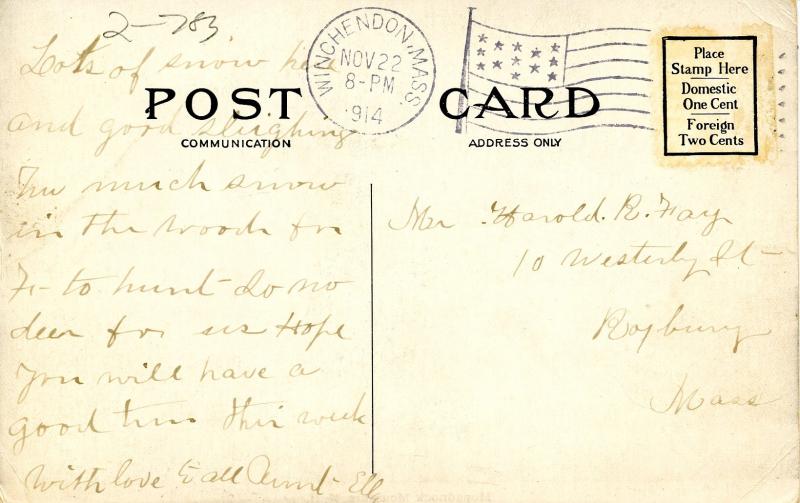 2-783
WINCHENDON, MASS.
NOV 22
8-PM
1914
Place
Stamp Here
Domestic
One Cent
Foreign
Two Cents
POST CARD
COMMUNICATION
ADDRESS ONLY
Lots of snow here
and good sleighing
Too much snow
in the woods for
F- to hunt- So no
deer for us Hope
You will have a
good time this week
With love to all Aunt- Ell
Mr Harold. R. Fay
10 Westerly St-
Roxbury
Mass